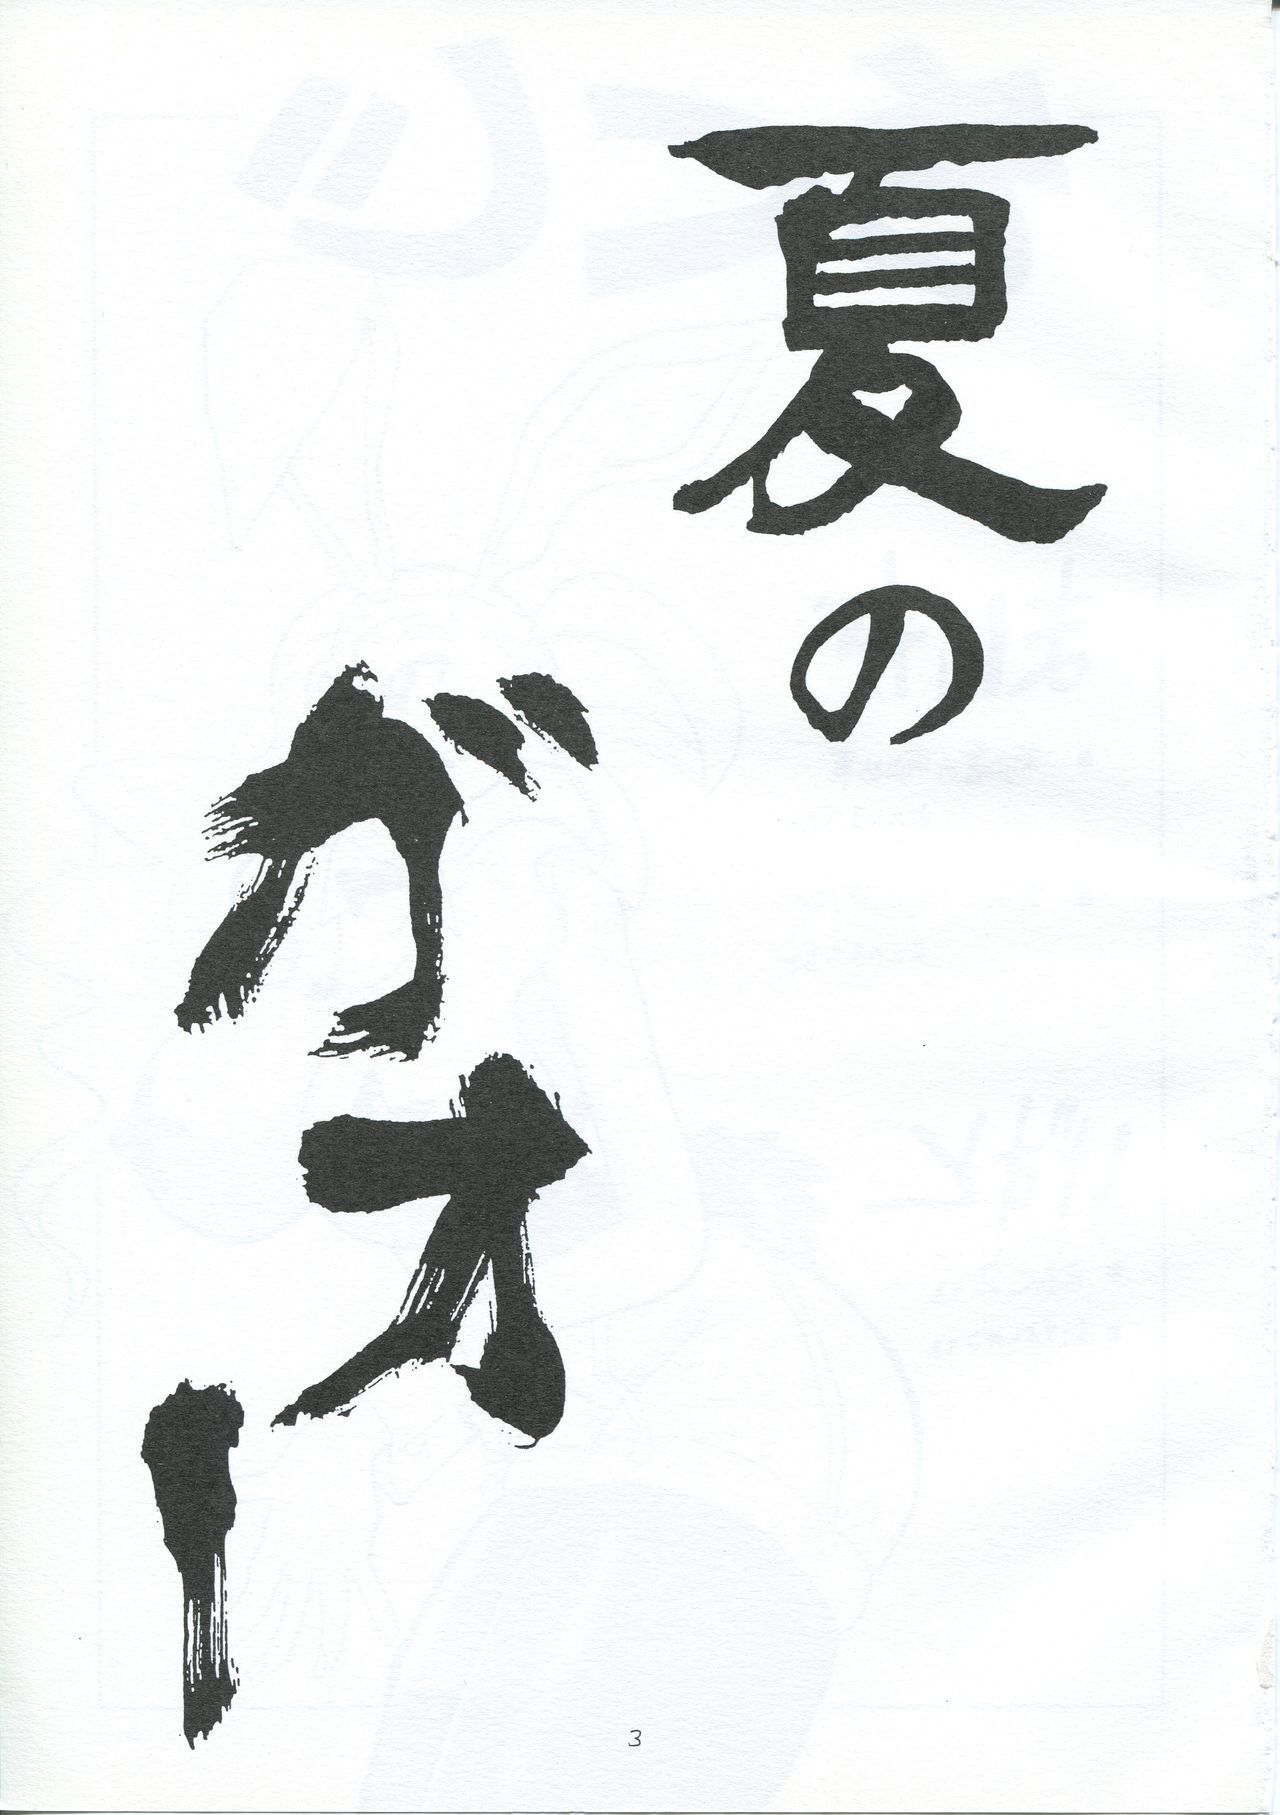 夏の
ガオー
3